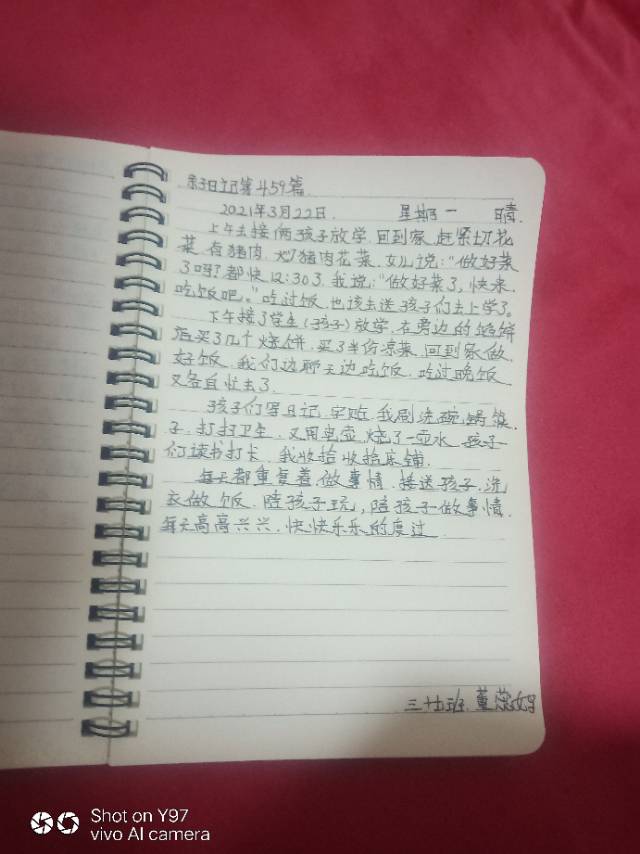 亲子日记第459篇
2021年3月22日. 星期一 晴.
上午去接俩孩子放学.回到家.赶紧切花
菜.有猪肉.炒猪肉花菜.女儿说:“做好菜
了吗?都快12:30了.我说:“做好菜了,快来.
吃饭吧。”吃过饭.也该去送孩子们去上学了。
下午接了学生(孩子)放学.在旁边的馅饼
店买了几个烧饼.买了半份凉菜.回到家做.
好饭.我们边聊天边吃饭.吃过晚饭
又各自忙去了.
孩子们写日记.字贴.我刷洗碗.锅筷
子.打扫卫生.又用电壶烧了一壶水.孩子
们读书打卡.我收拾收拾床铺.
每天都重复着做事情.接送孩子.洗
衣做饭.陪孩子玩,陪孩子做事情.
每天高高兴兴.快快乐乐的度过
三班.董
Shot on Y97
vivo AI camera